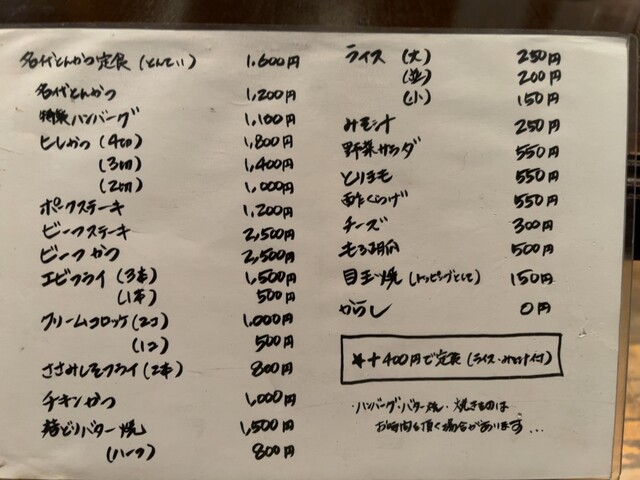 名代とんかつ定食 (とんてい) 1,600円
名代とんかつ 1,200円
特製ハンバーグ 1,100円
ヒレかつ (4切) 1,800円
(3切) 1,400円
(2切) 1,000円
ポークステーキ 1,200円
ビーフステーキ 2,500円
ビーフかつ 2,500円
エビフライ (3本) 1,500円
(1本) 500円
クリームコロッケ (2コ) 1,000円
(1コ) 500円
ささみしそフライ (2本) 800円
チキンかつ 1,000円
若どりバター焼 1,500円
(ハーフ) 800円
ライス (大) 250円
(並) 200円
(小) 150円
みそ汁 250円
野菜サラダ 550円
とりもも 550円
酢くらげ 550円
チーズ 300円
もろ胡瓜 500円
目玉焼 (トッピングとして) 150円
からし 0円
＊＋400円で定食 (ライス・みそ汁付)
・ハンバーグ・バター焼・焼きものは
お時間を頂く場合があります…